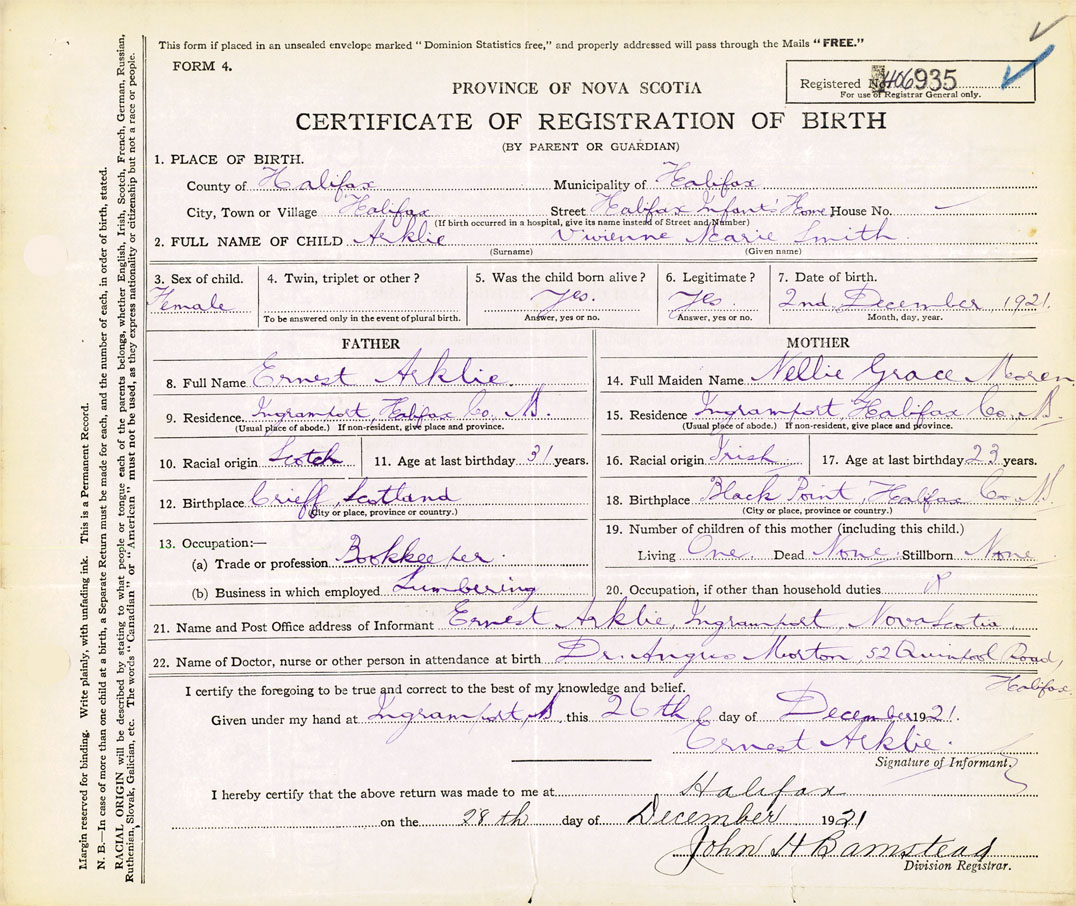 This form if placed in an unsealed envelope marked "Dominion Statistics free," and properly addressed will pass through the Mails "FREE."
FORM 4.
PROVINCE OF NOVA SCOTIA
Registered No. 406935
For use of Registrar General only.
CERTIFICATE OF REGISTRATION OF BIRTH
(BY PARENT OR GUARDIAN)
1. PLACE OF BIRTH.
County of Halifax Municipality of Halifax
City, Town or Village Halifax Street Halifax Infants' Home House No.
(If birth occurred in a hospital, give its name instead of Street and Number)
2. FULL NAME OF CHILD Arklie Vivienne Marie Smith
(Surname) (Given name)
3. Sex of child. 4. Twin, triplet or other? 5. Was the child born alive? 6. Legitimate? 7. Date of birth.
Female Yes. Yes. 2nd December, 1921.
To be answered only in the event of plural birth. Answer, yes or no. Answer, yes or no. Month, day, year.
FATHER
8. Full Name Ernest Arklie.
9. Residence. Ingramport, Halifax Co. N.S.
(Usual place of abode.) If non-resident, give place and province.
10. Racial origin Scotch 11. Age at last birthday 31 years.
12. Birthplace Crieff, Scotland
(City or place, province or country.)
13. Occupation:—
(a) Trade or profession Bookkeeper.
(b) Business in which employed Lumbering
MOTHER
14. Full Maiden Name Nellie Grace Moren
15. Residence Ingramport Halifax Co. N.S.
(Usual place of abode.) If non-resident, give place and province.
16. Racial origin Irish 17. Age at last birthday 23 years.
18. Birthplace Black Point, Halifax Co. N.S.
(City or place, province or country.)
19. Number of children of this mother (including this child.)
Living One. Dead None. Stillborn None
20. Occupation, if other than household duties
21. Name and Post Office address of Informant Ernest Arklie, Ingramport, Nova Scotia.
22. Name of Doctor, nurse or other person in attendance at birth Dr. Angus Morton, 52 Quinpool Road,
Halifax.
I certify the foregoing to be true and correct to the best of my knowledge and belief.
Given under my hand at Ingramport, N.S. this 26th day of December 1921.
Ernest Arklie.
Signature of Informant.
I hereby certify that the above return was made to me at Halifax
on the 28th day of December 1921
John H Barnstead
Division Registrar.
Margin reserved for binding. Write plainly, with unfading ink. This is a Permanent Record.
N. B.—In case of more than one child at a birth, a Separate Return must be made for each, and the number of each, in order of birth, stated.
RACIAL ORIGIN will be described by stating to what people or tongue each of the parents belongs, whether English, Irish, Scotch, French, German, Russian,
Ruthenian, Slovak, Galician, etc. The words "Canadian" or "American" must not be used, as they express nationality or citizenship but not a race or people.